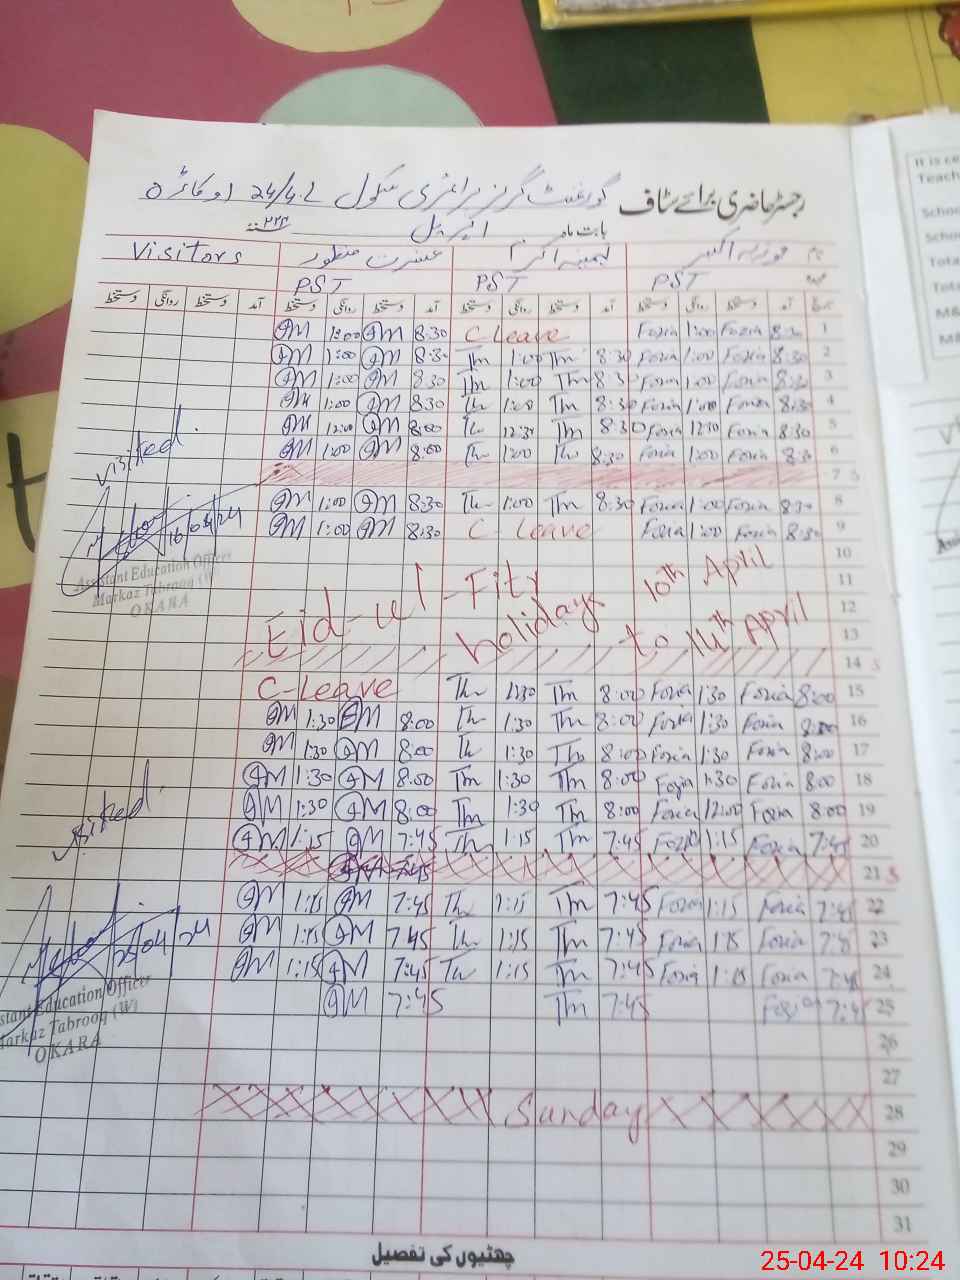 رجسٹر حاضری برائے سٹاف گورنمنٹ گرلز پرائمری سکول 24/4.L اوکاڑہ
بابت ماہ اپریل ۲۰۲۴
نام فوزیہ اکبر اکرم عشرت منظور Visitors
عہدہ PST PST PST
تاریخ آمد دستخط روانگی دستخط آمد دستخط روانگی دستخط آمد دستخط روانگی دستخط آمد دستخط روانگی دستخط
1 8:30 Fozia 1:00 Fozia C Leave 8:30 AM 1:00 AM
2 8:30 Fozia 1:00 Fozia 8:30 Tm 1:00 Tm 8:30 AM 1:00 AM
3 8:30 Fozia 1:00 Fozia 8:3 Tm 1:00 Tm 8:30 AM 1:00 AM
4 8:30 Fozia 1:00 Fozia 8:30 Tm 1:00 Tm 8:30 AM 1:00 AM
5 8:30 Fozia 12:30 Fozia 8:30 Tm 12:30 Tm 8:00 AM 12:00 AM
6 8:30 Fozia 1:00 Fozia 8:30 Tm 1:00 Tm 8:00 AM 1:00 AM
visited
7 S
8 8:30 Fozia 1:00 Fozia 8:30 Tm 1:00 Tm 8:30 AM 1:00 AM
9 8:30 Fozia 1:00 Fozia C-Leave 8:30 AM 1:00 AM
16/04/24
Assistant Education Officer
Markaz Tabrooq (W)
OKARA
10
11
12
13
Eid-ul-Fitr holidays 10th April to 14th April
14 S
15 8:00 Fozia 1:30 Fozia 8:00 Tm 1:30 Tm C-Leave
16 8:00 Fozia 1:30 Fozia 8:00 Tm 1:30 Tm 8:00 AM 1:30 AM
17 8:00 Fozia 1:30 Fozia 8:00 Tm 1:30 Tm 8:00 AM 1:30 AM
18 8:00 Fozia 1:30 Fozia 8:00 Tm 1:30 Tm 8:00 AM 1:30 AM
19 8:00 Fozia 12:00 Fozia 8:00 Tm 1:30 Tm 8:00 AM 1:30 AM
visited
20 7:45 Fozia 1:15 Fozia 7:45 Tm 1:15 Tm 7:45 AM 1:15 AM
21 S
22 7:45 Fozia 1:15 Fozia 7:45 Tm 1:15 Tm 7:45 AM 1:15 AM
23 7:45 Fozia 1:15 Fozia 7:45 Tm 1:15 Tm 7:45 AM 1:15 AM
24 7:45 Fozia 1:15 Fozia 7:45 Tm 1:15 Tm 7:45 AM 1:15 AM
25 7:45 Fozia 7:45 Tm 7:45 AM
25/04/24
stant Education Officer
Markaz Tabrooq (W)
OKARA
26
27
28 Sunday
29
30
31
چھٹیوں کی تفصیل
It is ce
Teach
Schoo
Schoo
Tota
Tota
M&
M&
25-04-24 10:24